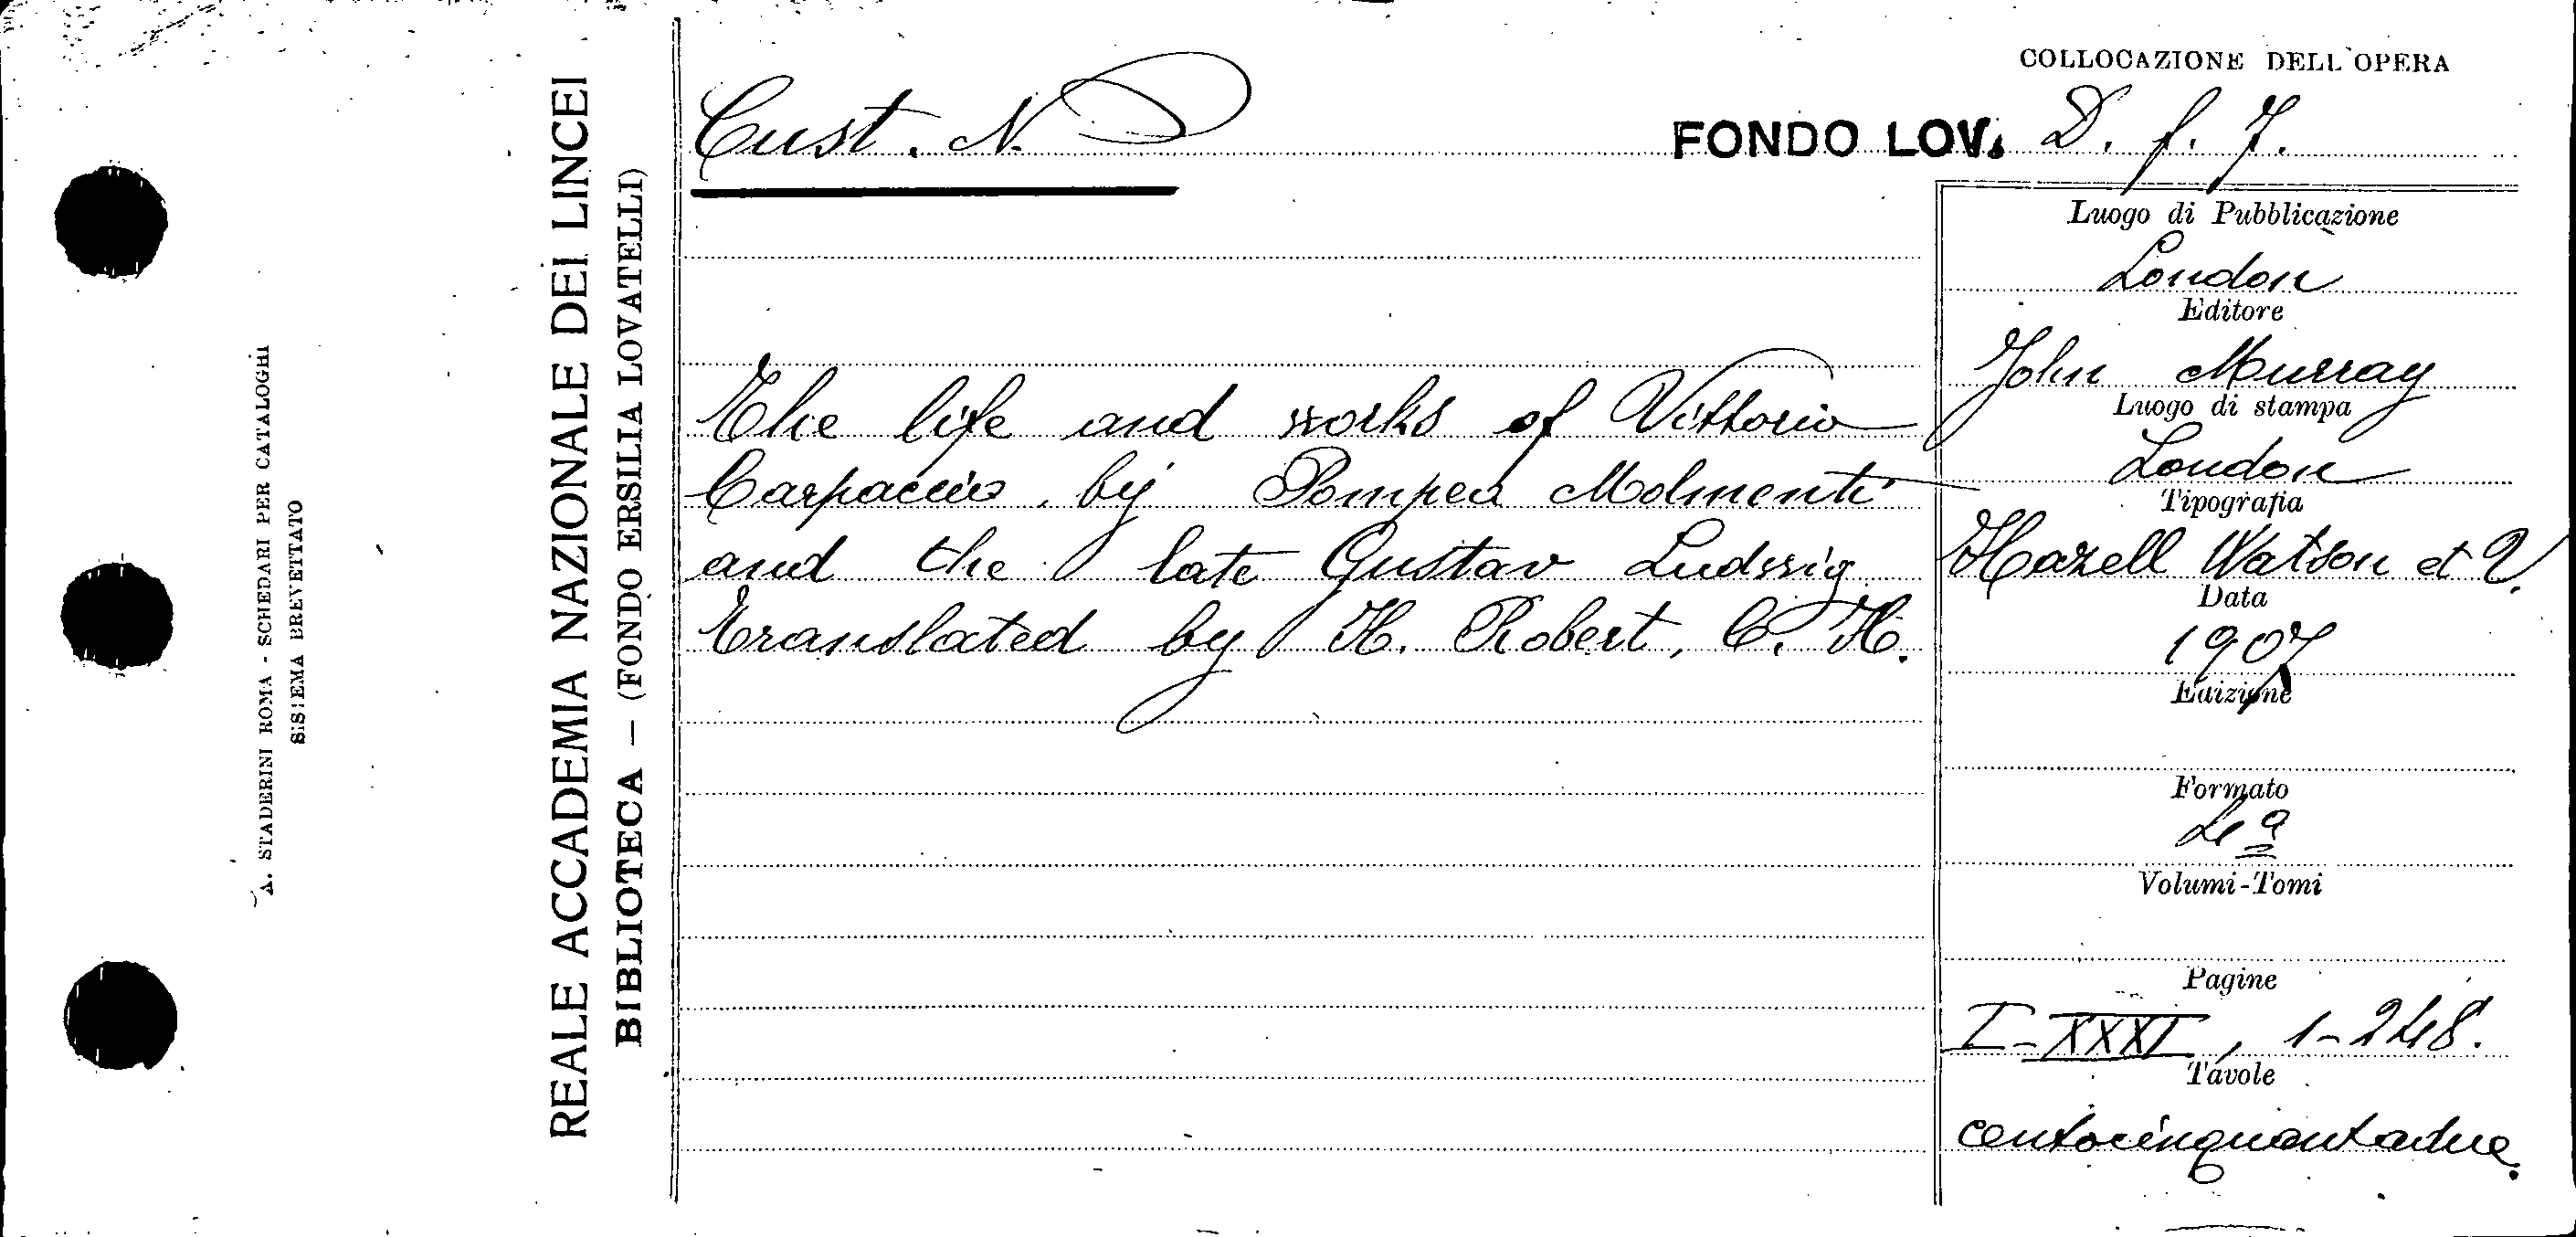 COLLOCAZIONE DELL'OPERA
Cust. N.
FONDO LOV. D. f. 7.
REALE ACCADEMIA NAZIONALE DEI LINCEI
BIBLIOTECA — (FONDO ERSILIA LOVATELLI)
A. STADERINI ROMA - SCHEDARI PER CATALOGHI
SISTEMA BREVETTATO
The life and works of Vittorio
Carpaccio, by Pompeo Molmenti
and the late Gustav Ludwig
translated by H. Robert, C. H.
Luogo di Pubblicazione
London
Editore
John Murray
Luogo di stampa
London
Tipografia
Hazell Watson et V.
Data
1907
Edizione
Formato
4º
Volumi-Tomi
Pagine
I-XXXI, 1-248.
Tavole
centocinquantadue.